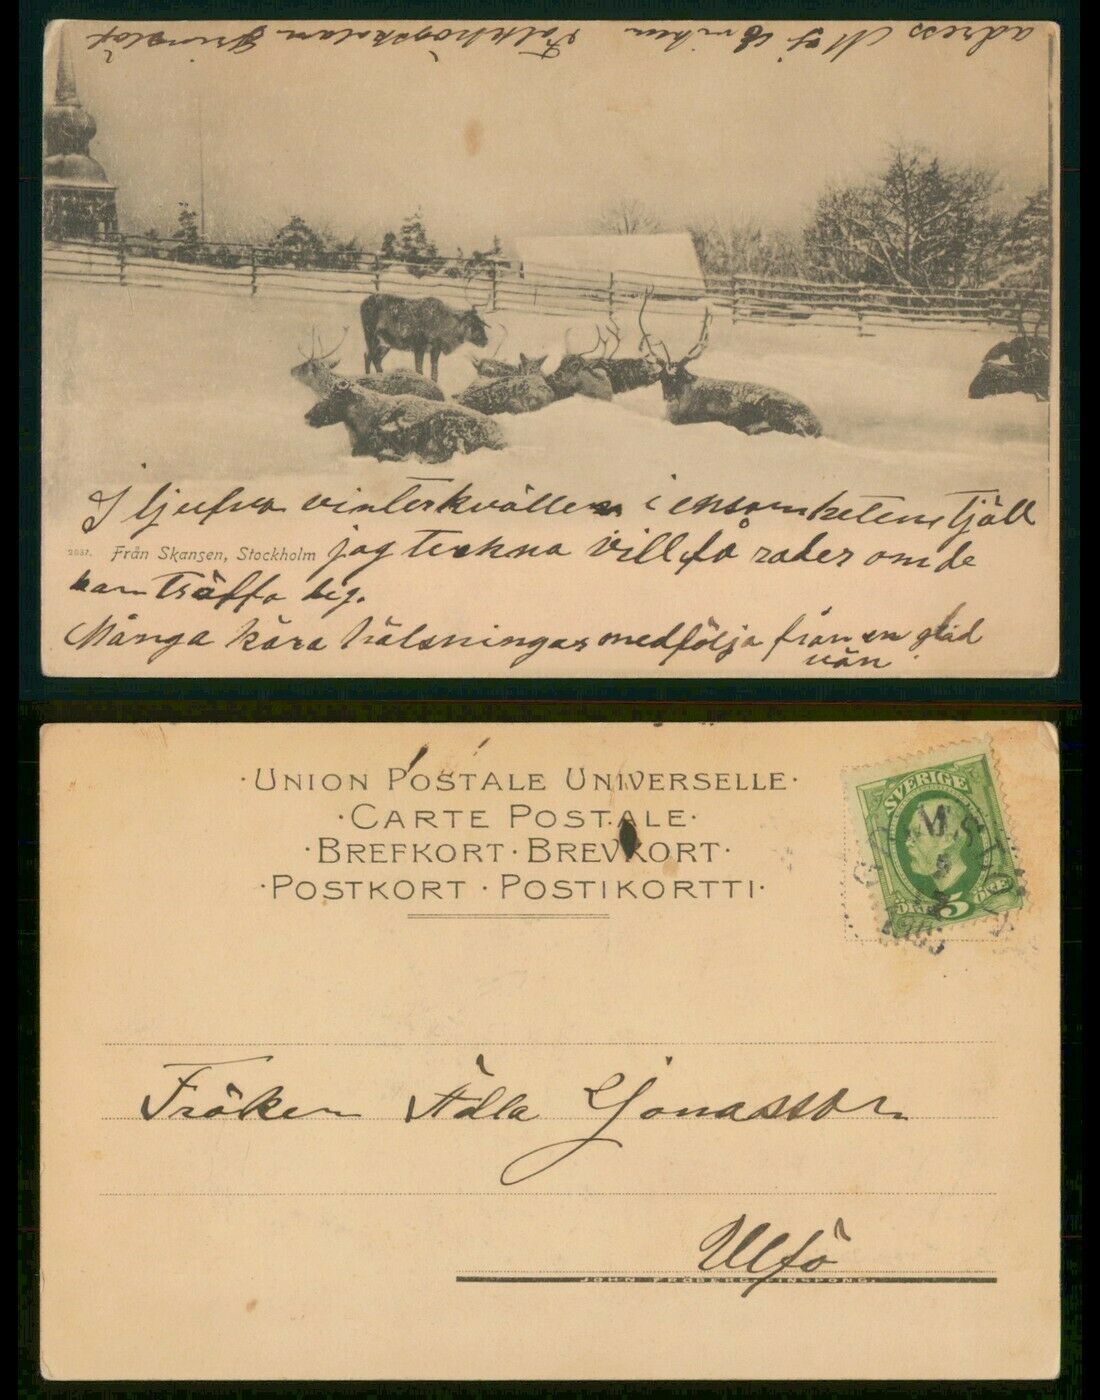 adress Maj Folkhögskolan Grundlöt
I ljufva vinterkvällen i ensamhetens tjäll
2037. Från Skansen, Stockholm jag teckna vill få rader om de
kan träffa dig.
Många kära hälsningar medfölja från en glad
vän.
·UNION POSTALE UNIVERSELLE·
·CARTE POSTALE·
·BREFKORT·BREVKORT·
·POSTKORT·POSTIKORTTI·
SVERIGE
5 ÖRE
Fröken Ädla Jonasson
Ulfö
JOHN FRÖBERG, FINSPONG.